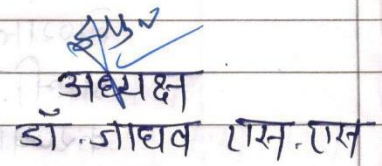 अध्यक्ष
डॉ. जाधव एस. एस